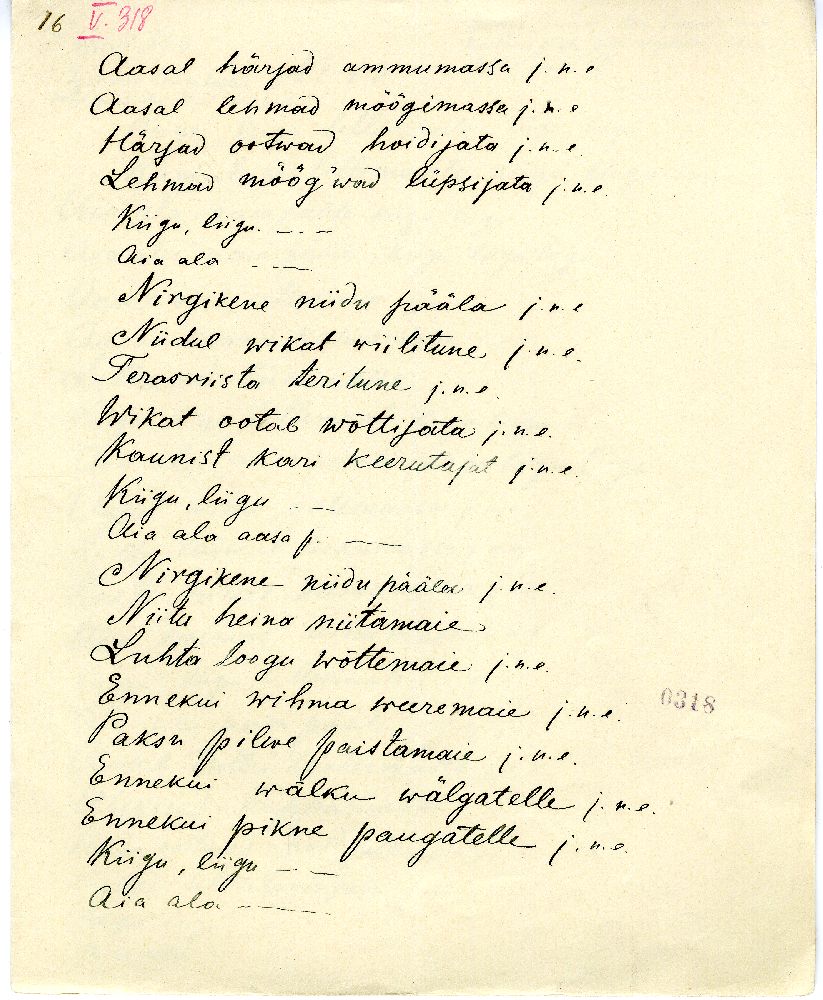 16 V. 318
Aasal härjad ammumassa j. n. e
Aasal lehmad möögimassa j. n. e
Härjad ootwad hoidijata j. n. e.
Lehmad möög'wad lüpsijata j. n. e.
Kiigu, liigu. — . —
Aia ala — . —
Nirgikene niidu pääla j. n. e
Niidul wikat wiilitune j. n. e.
Terasriista teritune j. n. e.
Wikat ootab wõttijata j. n. e.
Kaunist kari keerutajat j. n. e.
Kiigu, liigu — —
Aia ala aasa p. — —
Nirgikene niidu pääla j. n. e.
Niitu heina niitamaie
Luhta loogu wõttemaie j. n. e.
Ennekui wihma weeremaie j. n. e.
0318
Paksu pilwe paistamaie j. n. e.
Ennekui wälku wälgatelle j. n. e.
Ennekui pikne paugatelle j. n. e.
Kiigu, liigu — —
Aia ala — —